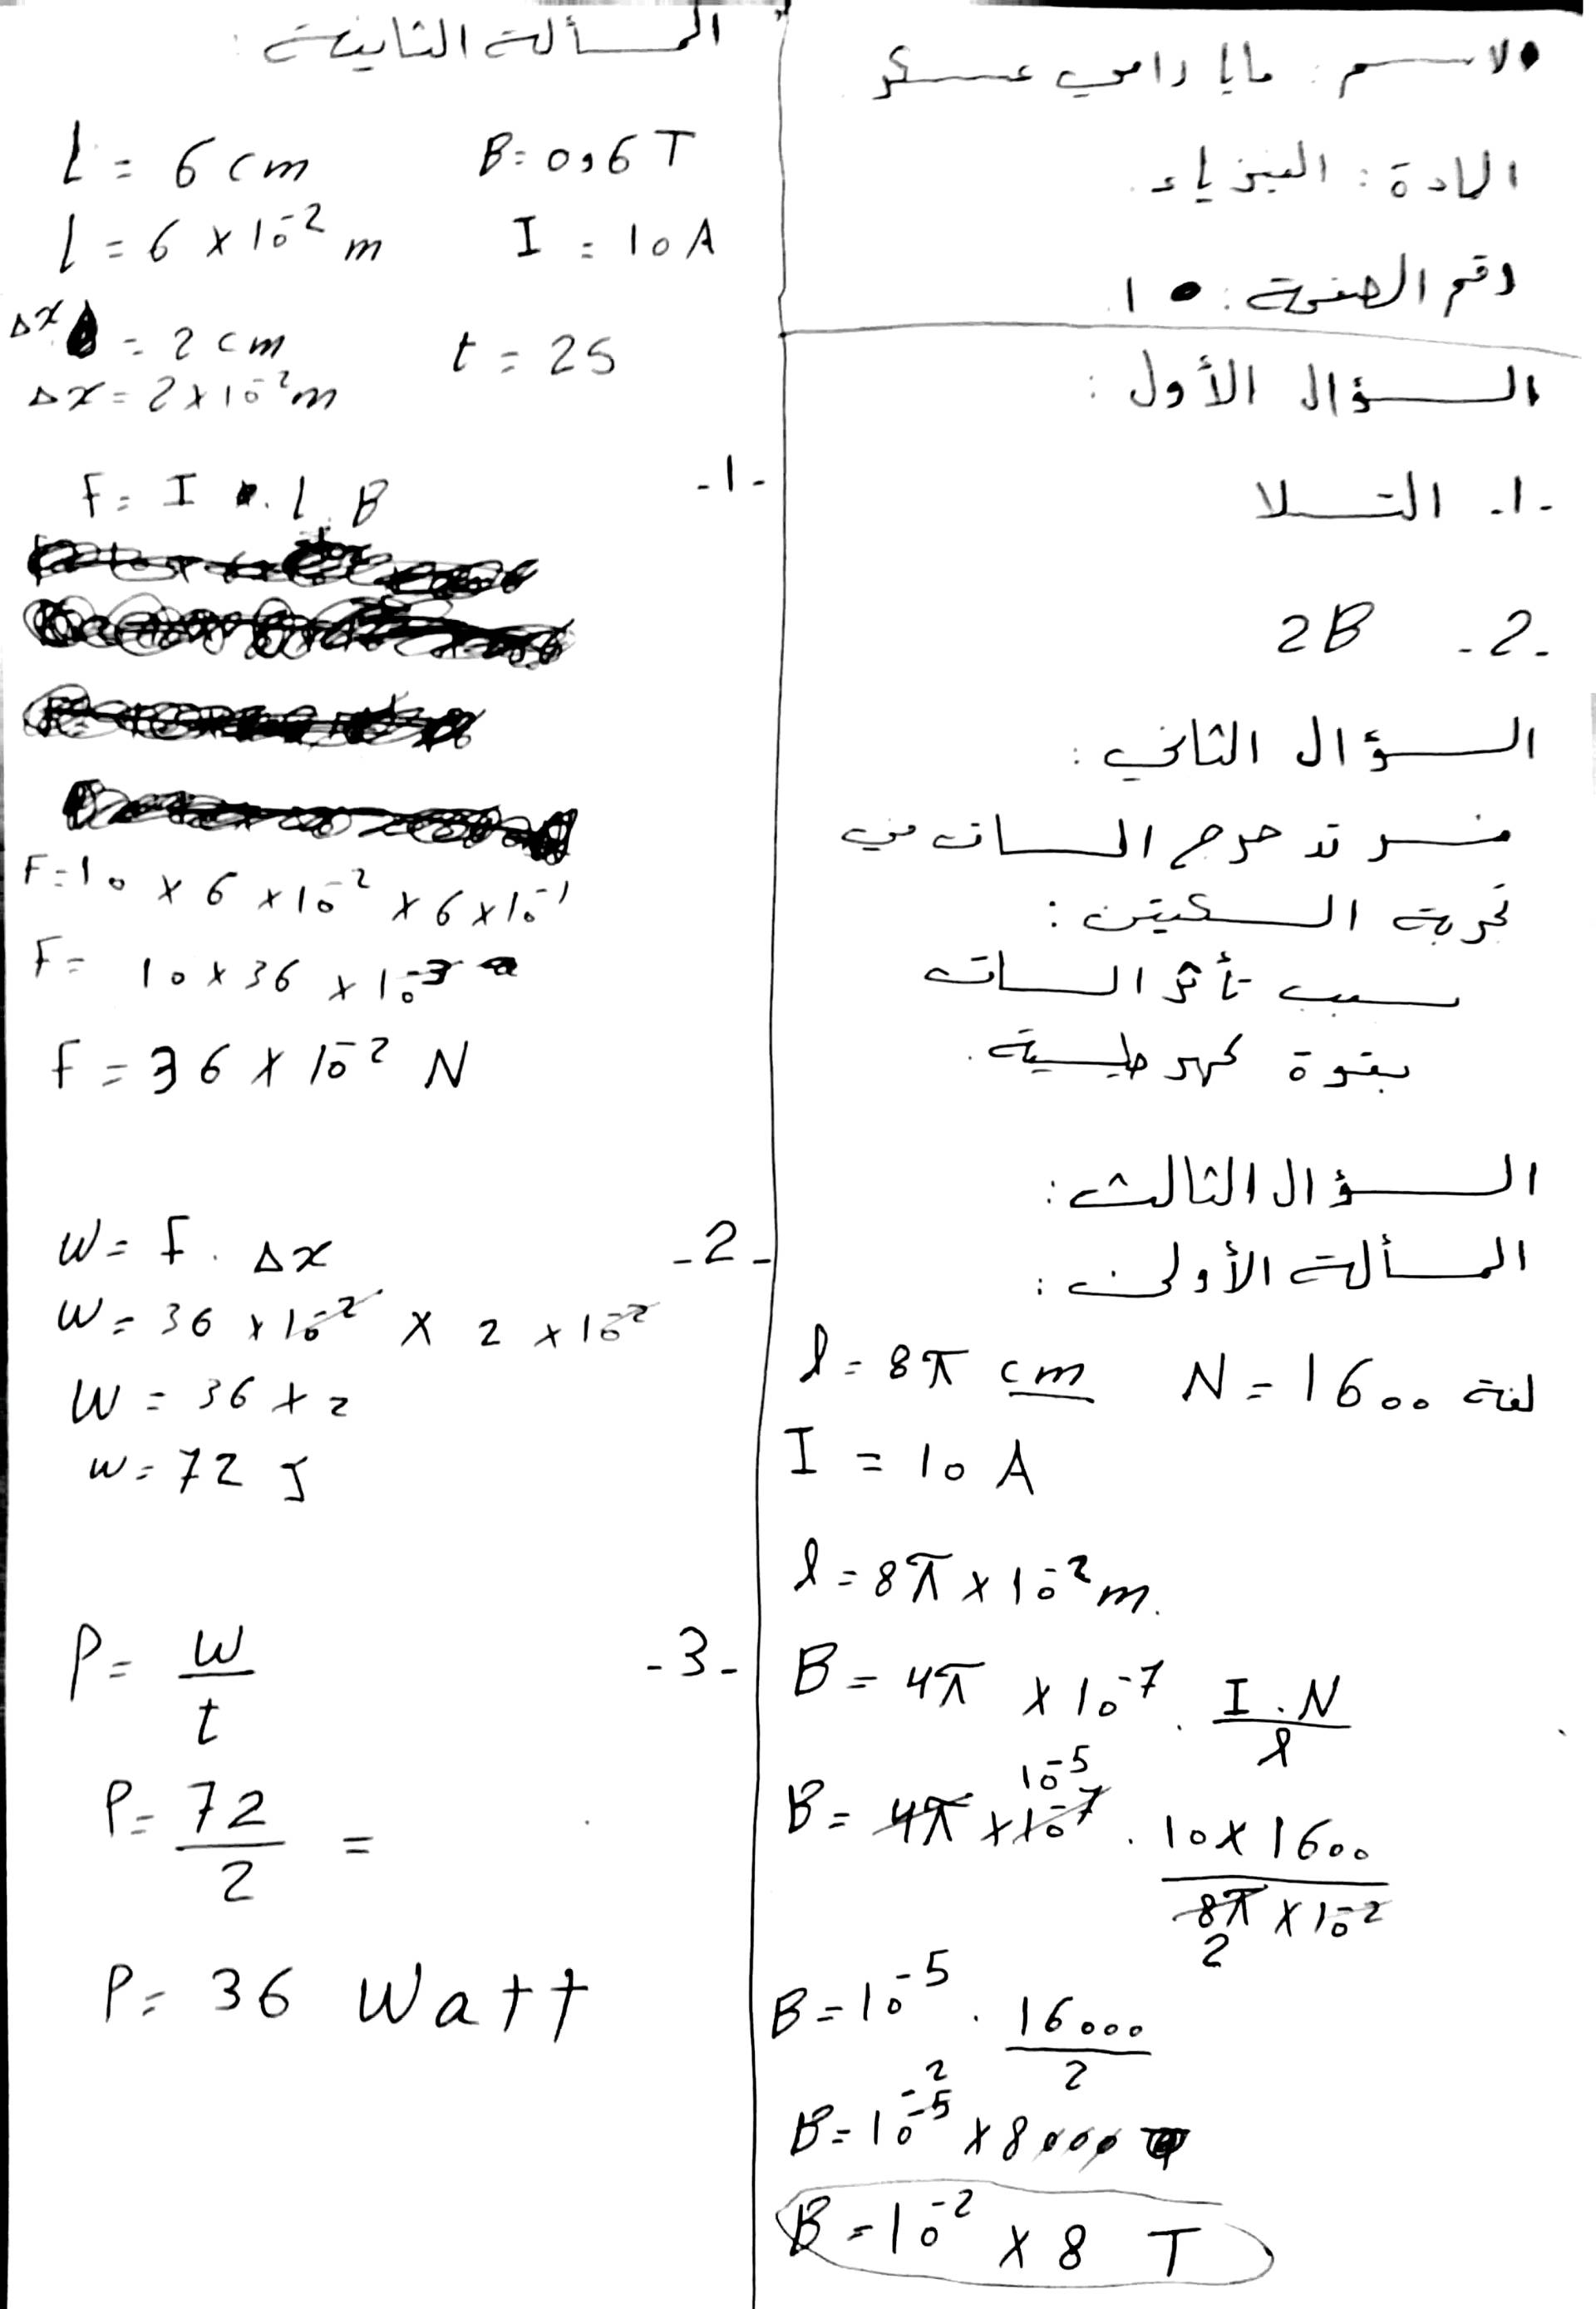 الاسم: مايا رامي عسكر
المادة: الفيزياء
رقم الصفحة: 1
السؤال الأول:
-1- التسلا
-2- 2B
السؤال الثاني:
فسر تدحرج الساق في
تجربة السكتين:
بسبب تأثر الساق
بقوة كهرطيسية.
السؤال الثالث:
المسألة الأولى:
l = 8π cm N = 1600 لفة
I = 10 A
l = 8π × 10⁻² m.
B = 4π × 10⁻⁷ . I . N / l
B = 4π × 10⁻⁷ 10⁻⁵ . 10 × 1600 / 8π × 10⁻² 2
B = 10⁻⁵ . 16000 / 2
B = 10⁻⁵ ⁻² × 8000
B = 10⁻² × 8 T
المسألة الثانية:
l = 6 cm B = 0,6 T
l = 6 × 10⁻² m I = 10 A
Δx = 2 cm t = 2 s
Δx = 2 × 10⁻² m
-1- F = I . l . B
F = 10 × 6 × 10⁻² × 6 × 10⁻¹
F = 10 × 36 × 10⁻³
F = 36 × 10⁻² N
-2- W = F . Δx
W = 36 × 10⁻² × 2 × 10⁻²
W = 36 × 2
W = 72 J
-3- P = W / t
P = 72 / 2 =
P = 36 Watt